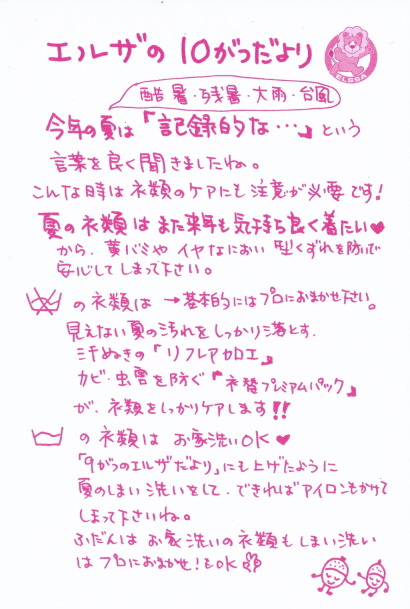 エルザの 10がつだより
酷暑・残暑・大雨・台風
今年の夏は「記録的な…」という
言葉を良く聞きましたね。
こんな時は衣類のケアにも注意が必要です!
夏の衣類はまた来年も気持ち良く着たい♥
から、黄バミや イヤなにおい 型くずれを防いで
安心してしまって下さい。
の衣類は →基本的にはプロにおまかせ下さい。
見えない夏の汚れをしっかり落とす、
汗ぬきの「リフレア加工」
カビ・虫害を防ぐ『衣替プレミアムパック』
が、衣類をしっかりケアします!!
の衣類は お家洗いOK♥
「9がつのエルザだより」にも上げたように
夏のしまい洗いをして、できればアイロンもかけて
しまって下さいね。
ふだんは お家洗いの衣類も しまい洗い
は プロにおまかせ!もOK